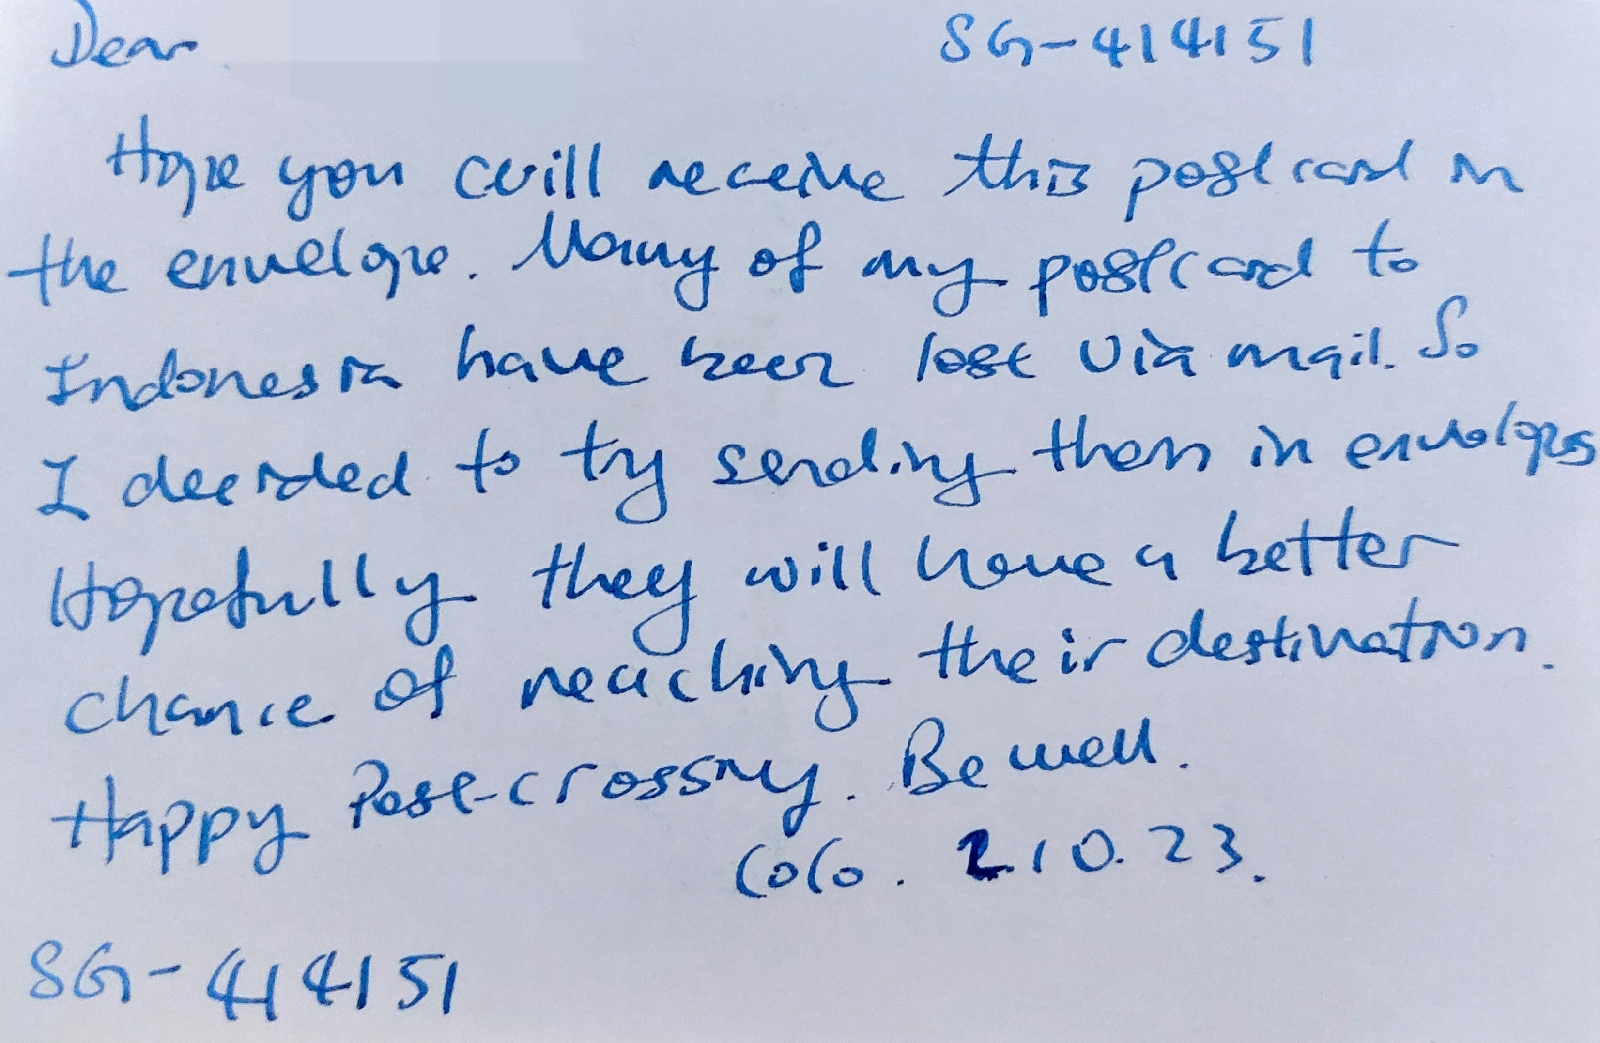 Dear SG-414151
Hope you will receive this postcard in
the envelope. Many of my postcard to
Indonesia have been lost via mail. So
I decided to try sending them in envelopes
Hopefully they will have a better
chance of reaching their destination.
Happy Post-crossing. Be well.
CoCo. 2.10.23.
SG-414151